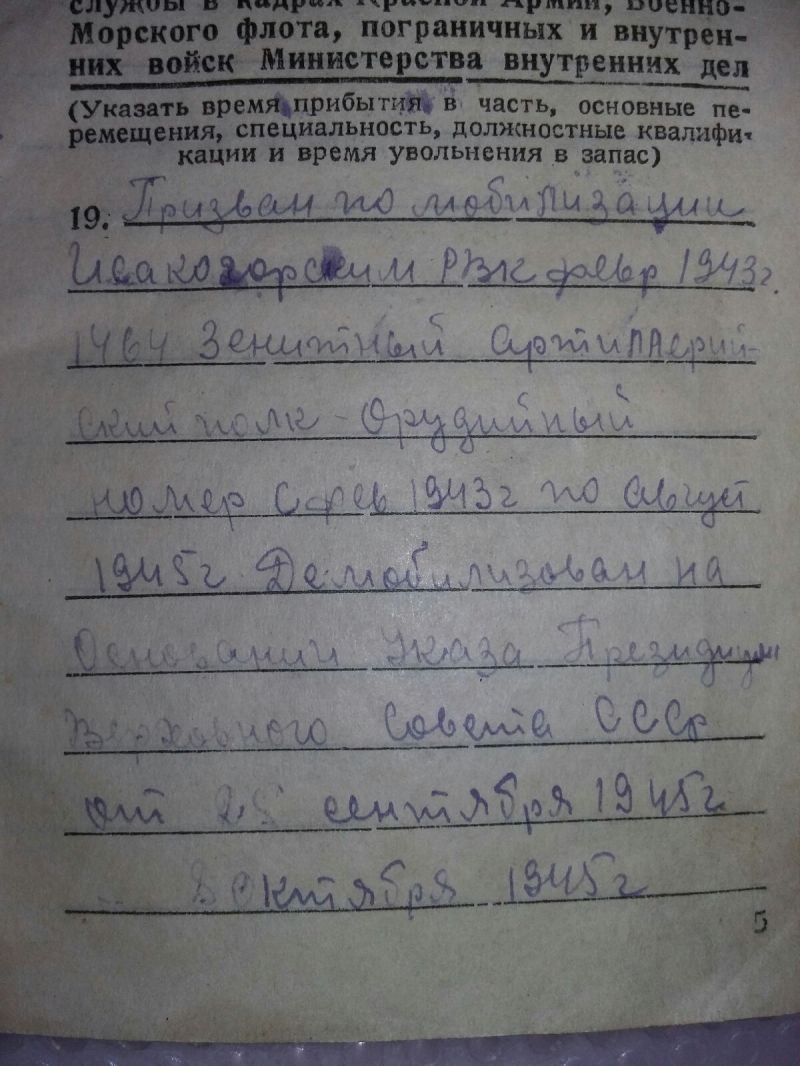 службы в кадрах Красной Армии, Военно-
Морского флота, пограничных и внутрен-
них войск Министерства внутренних дел
(Указать время прибытия в часть, основные пе-
ремещения, специальность, должностные квалифи-
кации и время увольнения в запас)
19. Призван по мобилизации
Исакогорским РВК февр 1943г.
1464 Зенитный Артиллерий-
ский полк - Орудийный
номер с фев 1943г по август
1945г. Демобилизован на
Основании Указа Президиум
Верховного Совета СССр
от 25 сентября 1945г
октября 1945г
5